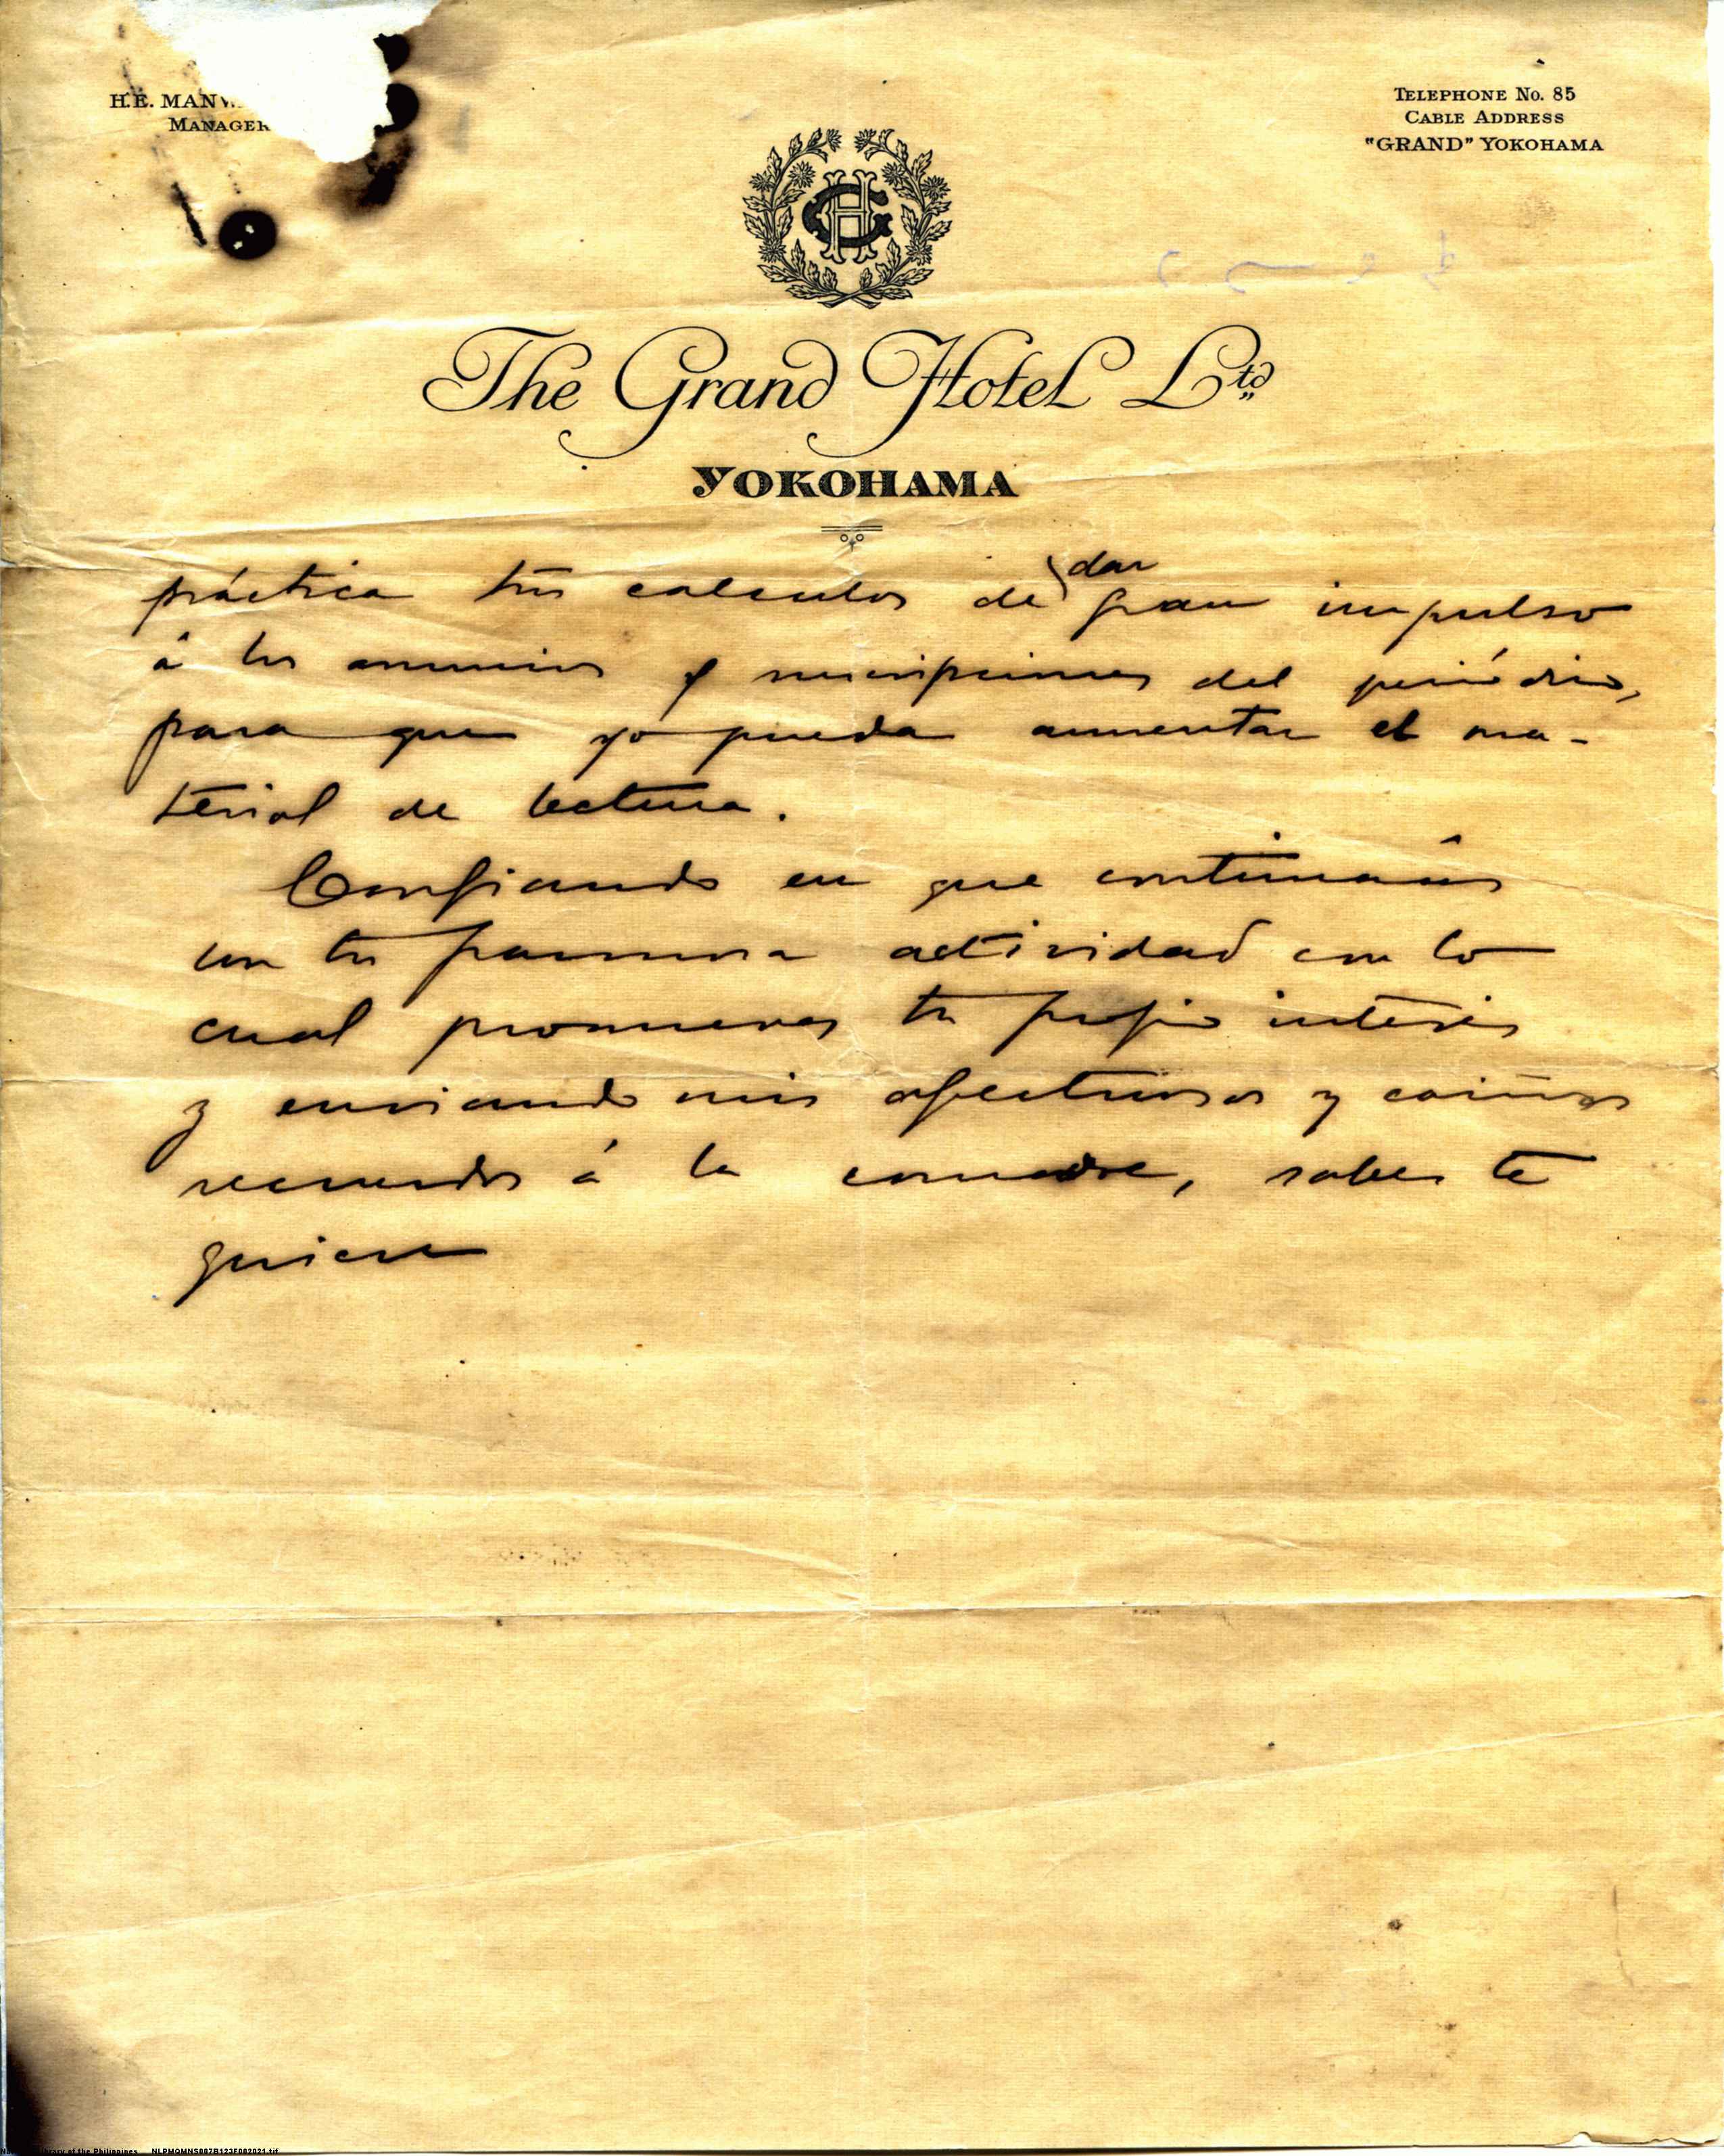 H.E. MANW
MANAGER
TELEPHONE No. 85
CABLE ADDRESS
"GRAND" YOKOHAMA
GH
The Grand Hotel Ltd.
YOKOHAMA
dar
práctica tus calculos de gran impulso
á los anuncios y suscripciones del periódico,
para que yo pueda aumentar el ma-
terial de lectura.
Confiando en que continuarás
con tu pasmosa actividad con lo
cual promueves tu propio interés
y enviando mis afectuosos y cariñosos
recuerdos á la comadre, sabes te
quiere
National Library of the Philippines NLPMQMNS007B123F002021.tif